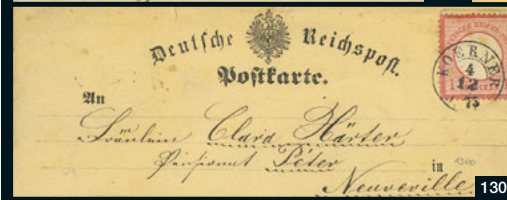 Deutsche Reichspost.
Postkarte.
KOERNER
4
12
75
An
Fräulein Clara Härter
Pensionat Péter
in
1300
Neuveville
130